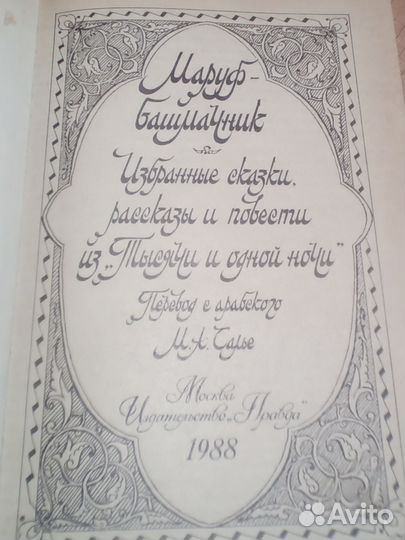 Маруф-
башмачник
Избранные сказки,
рассказы и повести
из „Тысячи и одной ночи“
Перевод с арабского
М. А. Салье
Москва
Издательство „Правда“
1988
Avito